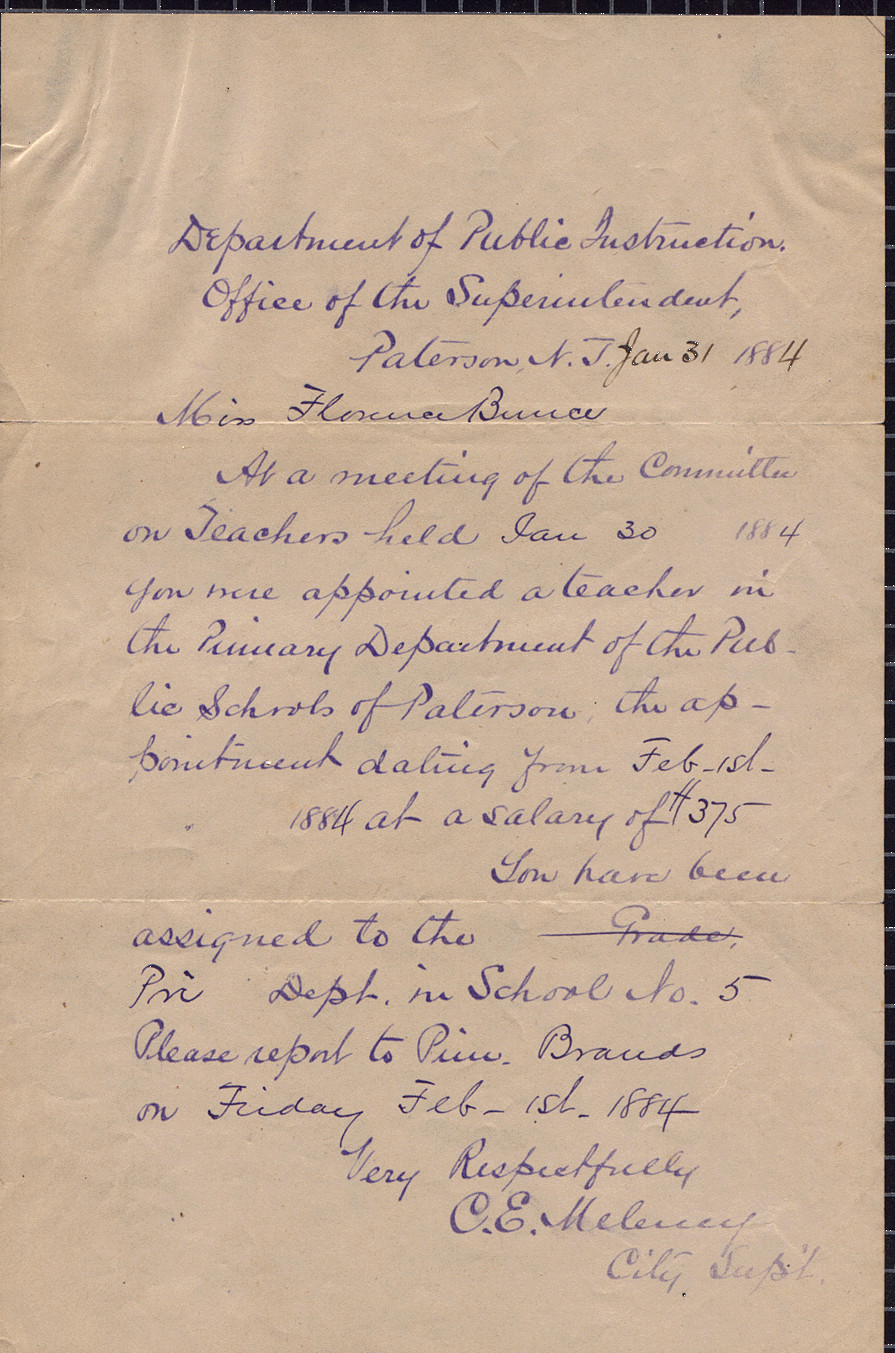 Department of Public Instruction.
Office of the Superintendent,
Paterson, N. J. Jan 31 1884
Miss Florence Bunce
At a meeting of the Committee
on Teachers held Jan 30 1884
you were appointed a teacher in
the Primary Department of the Pub-
lic Schools of Paterson, the ap-
pointment dating from Feb-1st-
1884 at a salary of $375
You have been
assigned to the Grade,
Pri Dept. in School No. 5
Please report to Prin. Brands
on Friday Feb-1st-1884
Very Respectfully
C.E. Meleney
City Sup't.